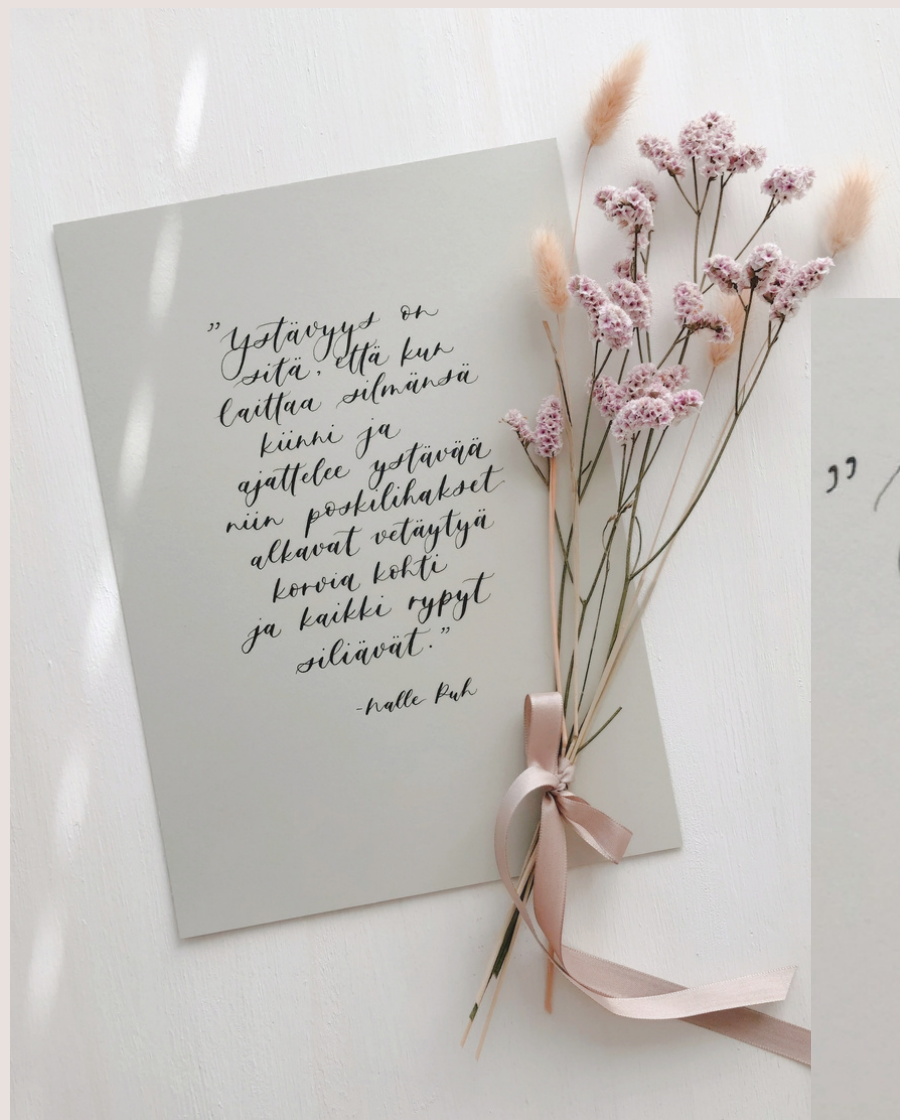 ”Ystävyys on
sitä, että kun
laittaa silmänsä
kiinni ja
ajattelee ystävää
niin poskilihakset
alkavat vetäytyä
korvia kohti
ja kaikki rypyt
siliävät.”
-Nalle Puh
”